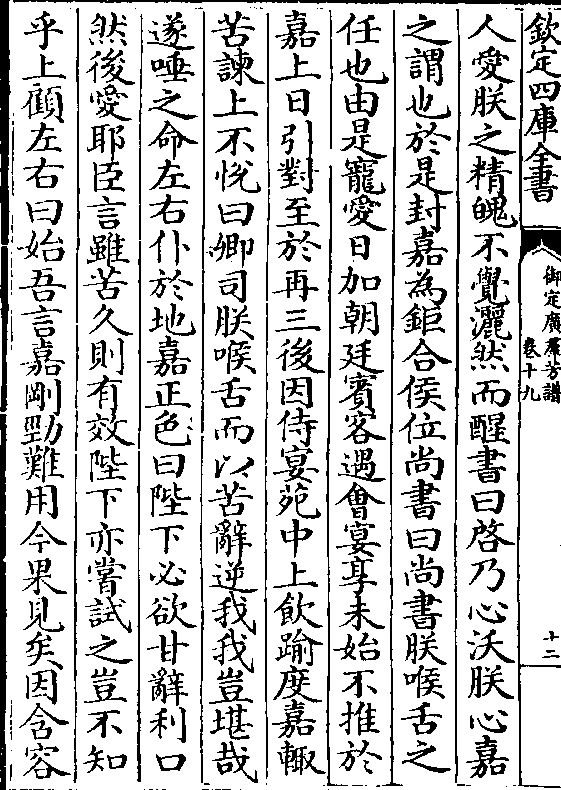 欽定四庫全書
御定廣羣芳譜
卷十九
十二
人愛朕之精魄不覺灑然而醒書曰啓乃心沃朕心嘉
之謂也於是封嘉為鉅合侯位尚書曰尚書朕喉舌之
任也由是寵愛日加朝廷賓客遇會宴享未始不推於
嘉上日引對至於再三後因侍宴苑中上飲踰度嘉輙
苦諫上不悅曰卿司朕喉舌而以苦辭逆我我豈堪哉
遂唾之命左右仆於地嘉正色曰陛下必欲甘辭利口
然後愛耶臣言雖苦久則有效陛下亦嘗試之豈不知
乎上顧左右曰始吾言嘉剛勁難用今果見矣因含容